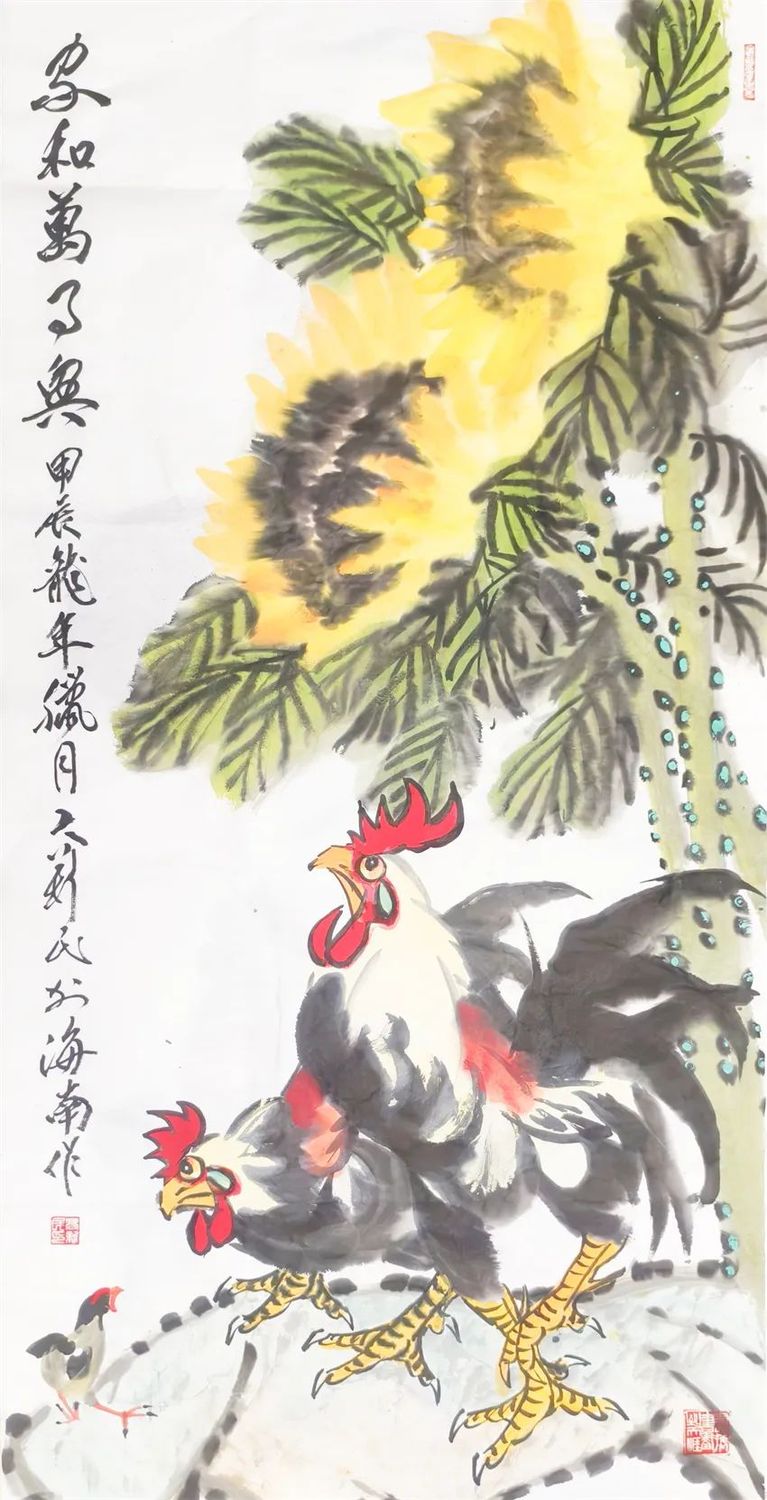 家和萬事興甲辰龍年臘月新民於海南作